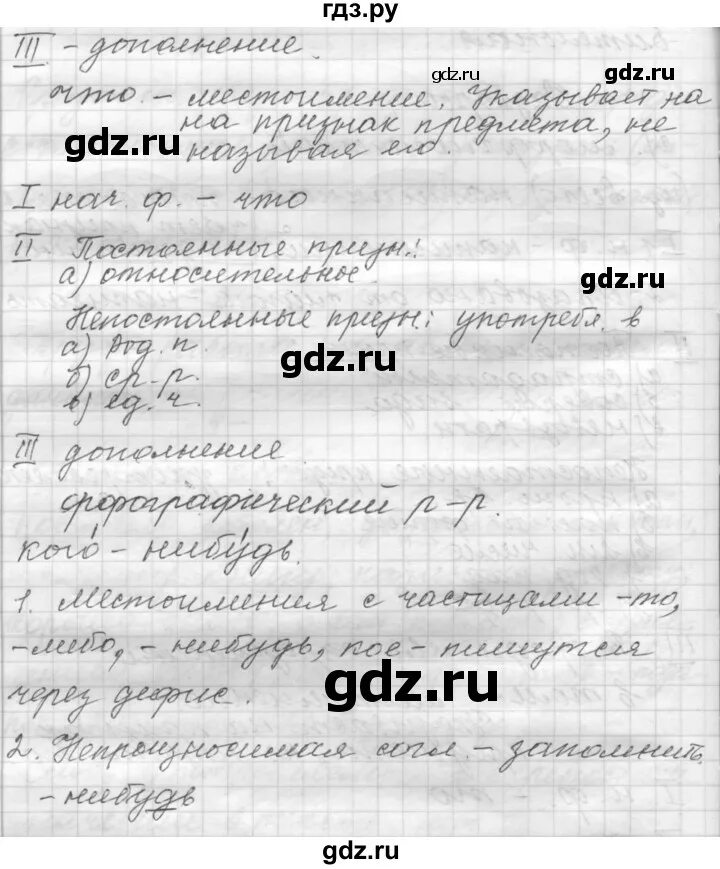 гдз.ру
III - дополнение.
gdz.ru
что - местоимение. Указывает на
на признак предмета, не
gdz.ru
называя его.
I нач. ф. - что
II Постоянные призн.:
а) относительное.
gdz.ru
Непостоянные призн: употребл. в
а) род. п.
gdz.ru
б) ср. р.
в) ед. ч.
III дополнение
орфографический р-р.
кого - нибудь.
1. Местоимения с частицами -то,
-либо, - нибудь, кое - пишутся
через дефис.
gdz.ru
2. Непроизносимая согл. - запомнить.
- нибудь
gdz.ru